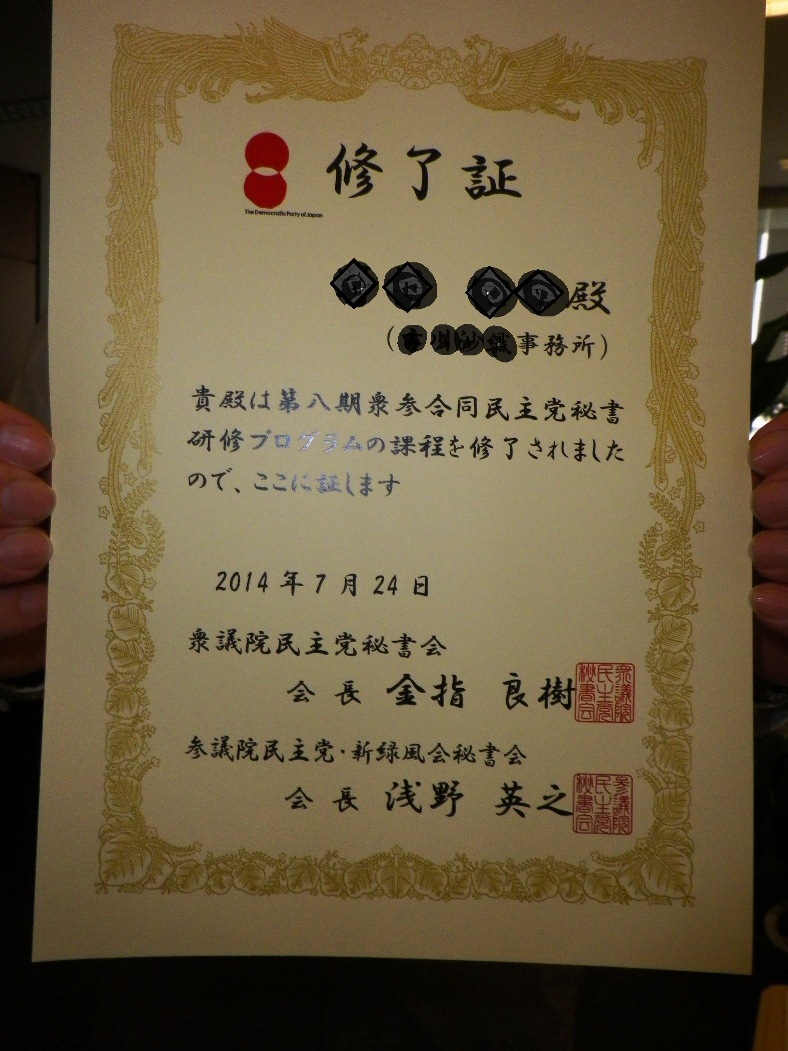 修了証
The Democratic Party of Japan
殿
(事務所)
貴殿は第八期衆参合同民主党秘書
研修プログラムの課程を修了されました
ので、ここに証します
2014年7月24日
衆議院民主党秘書会
会長 金指 良樹
衆議院民主党秘書会
参議院民主党・新緑風会秘書会
会長 浅野 英之
参議院民主党秘書会